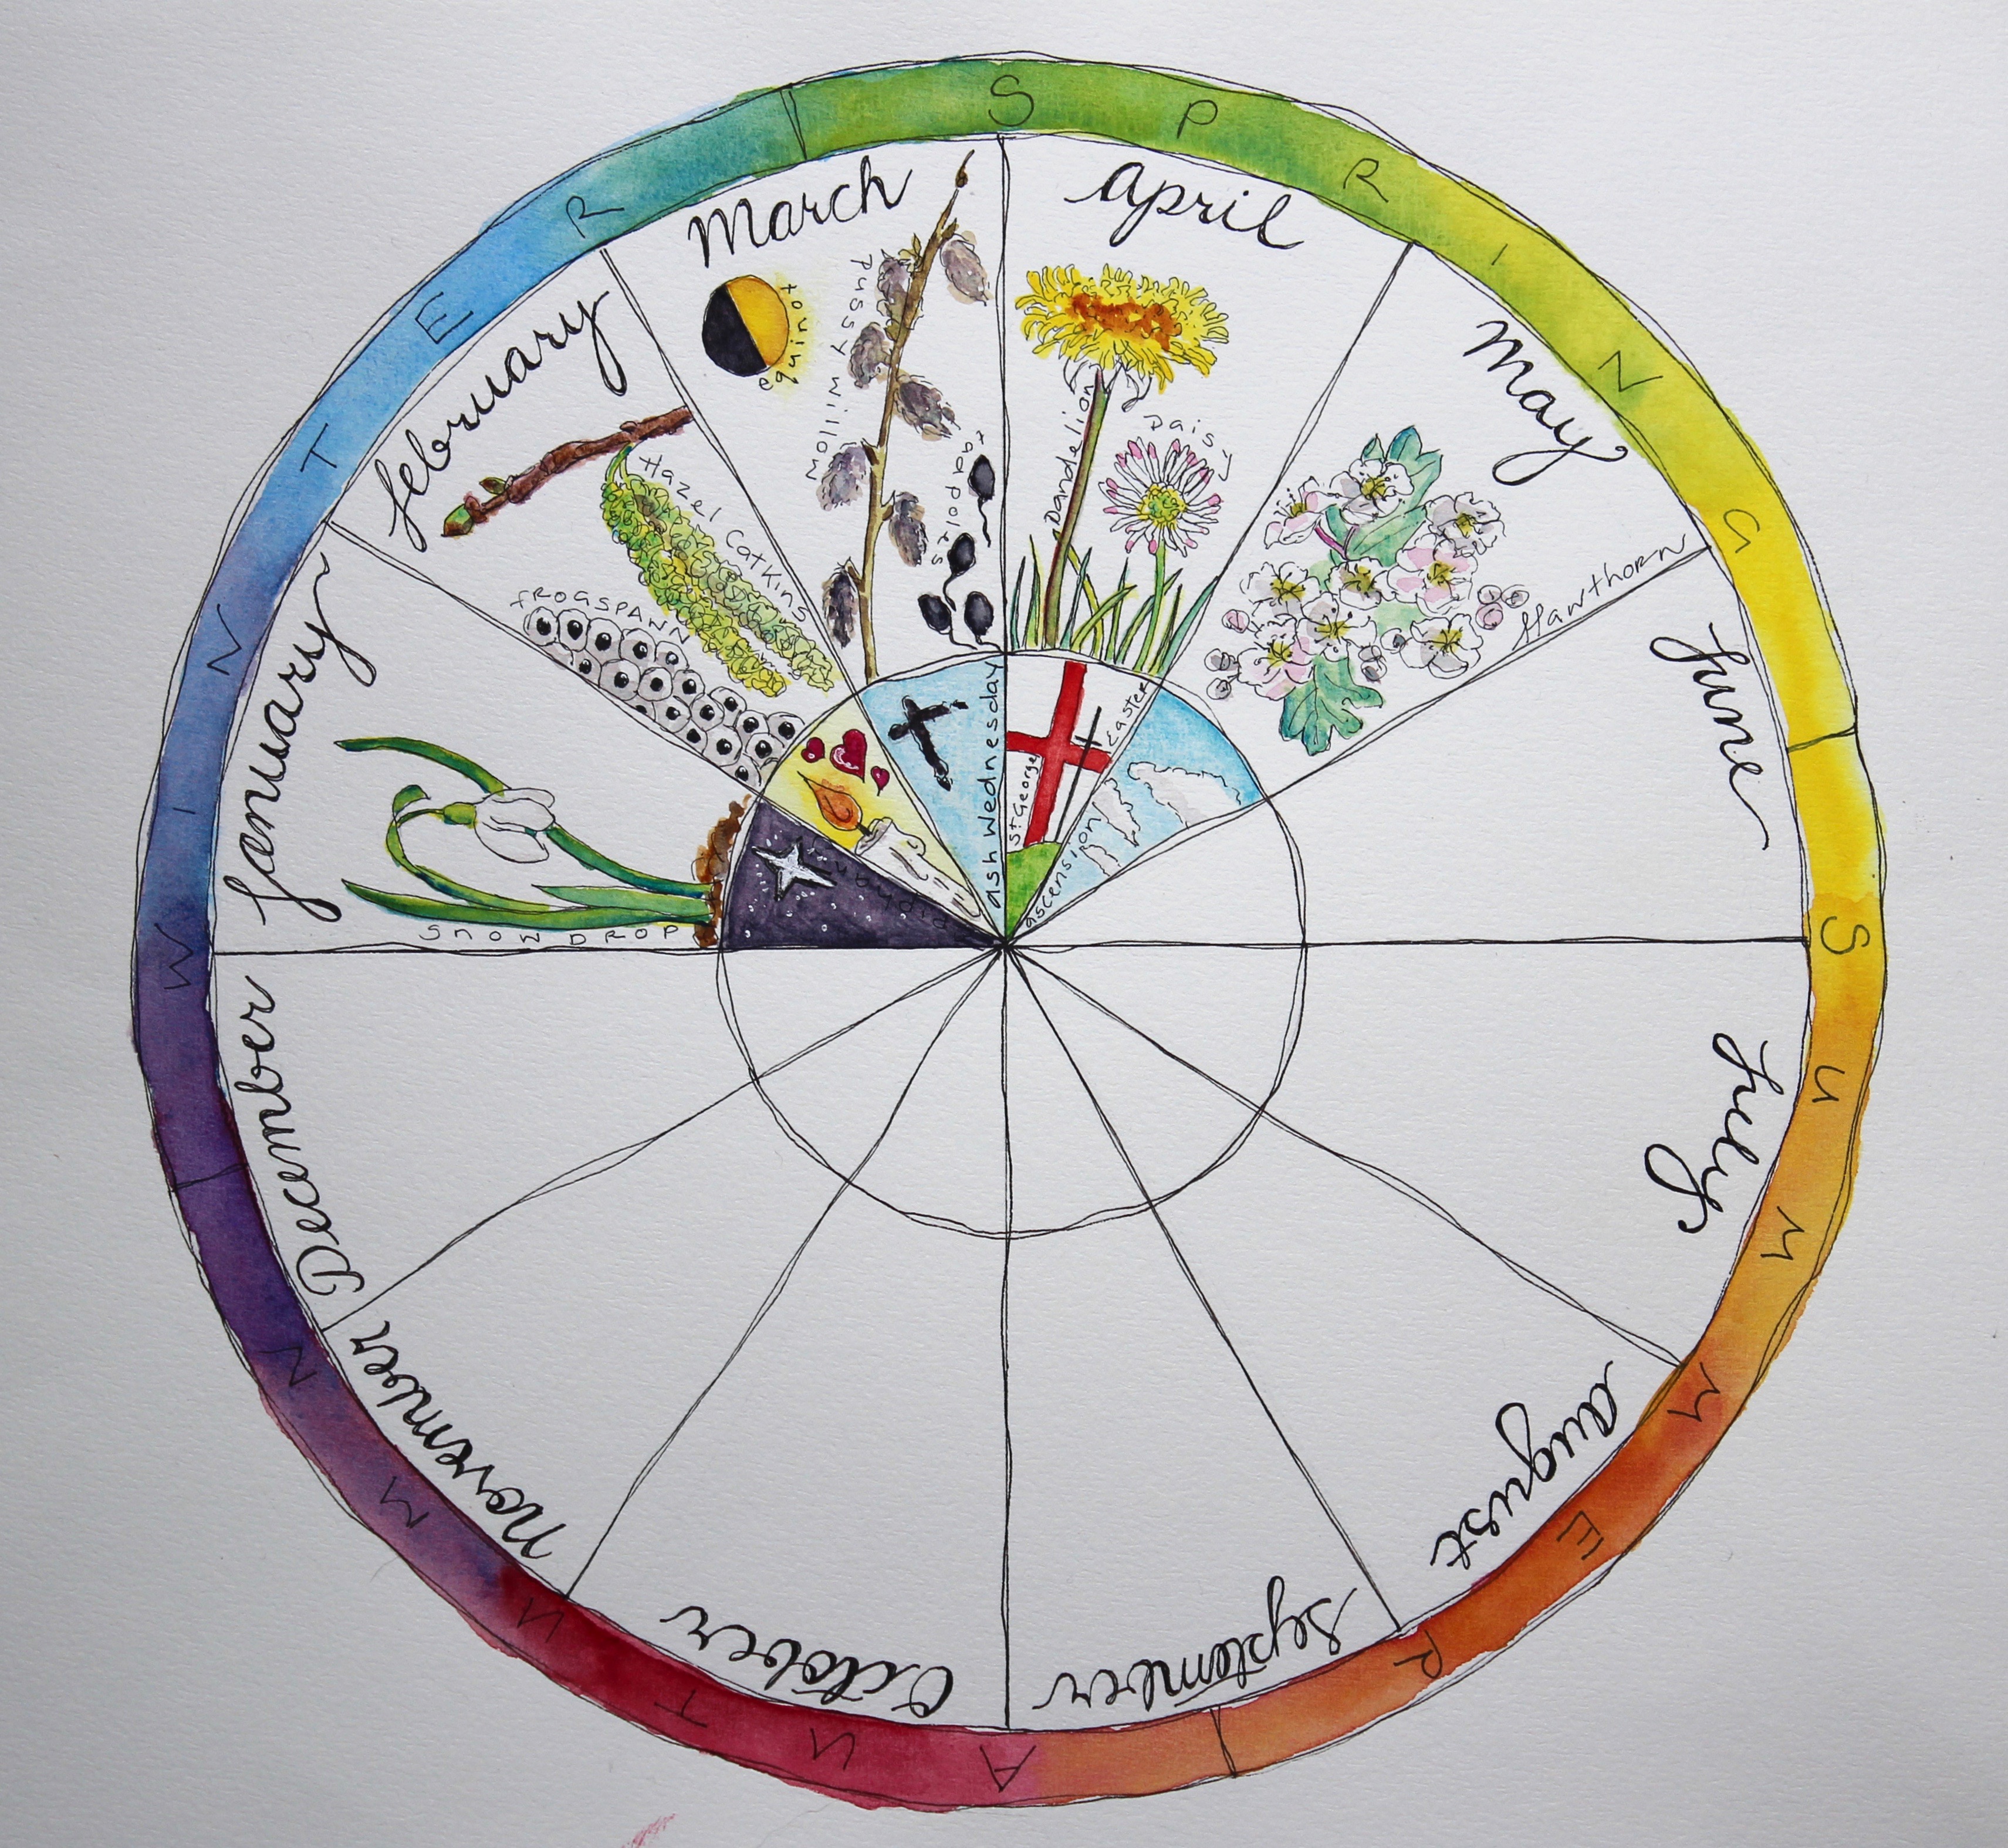 WINTER
SPRING
SUMMER
AUTUMN
January
snowDROP
epiphany
february
Hazel catkins
fROGSPANN
March
equinox
pussy willow
tadpoles
ash Wednesday
april
Dandelion
Daisy
St George
Easter
May
Hawthorn
ascension
June
July
august
September
October
November
December